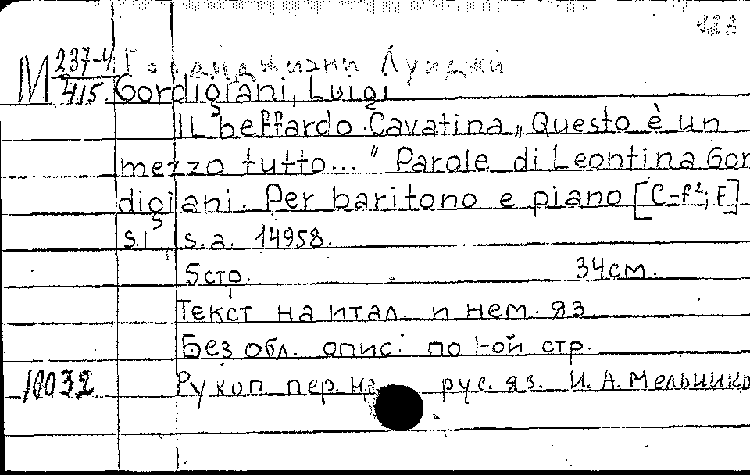 123
М 237-4/415. Гордиджиани Луиджи
Gordigiani, Luigi
Il beffardo. Cavatina „Questo è un
mezzo tutto..." Parole di Leontina Gor
digiani. Per baritono e piano [C-f²; F]
s.l. s.a. 14958.
5 стр. 34 см.
Текст на итал. и нем. яз.
Без обл. опис. по 1-ой стр.
18032 Рукоп. пер. на рус. яз. И. А.